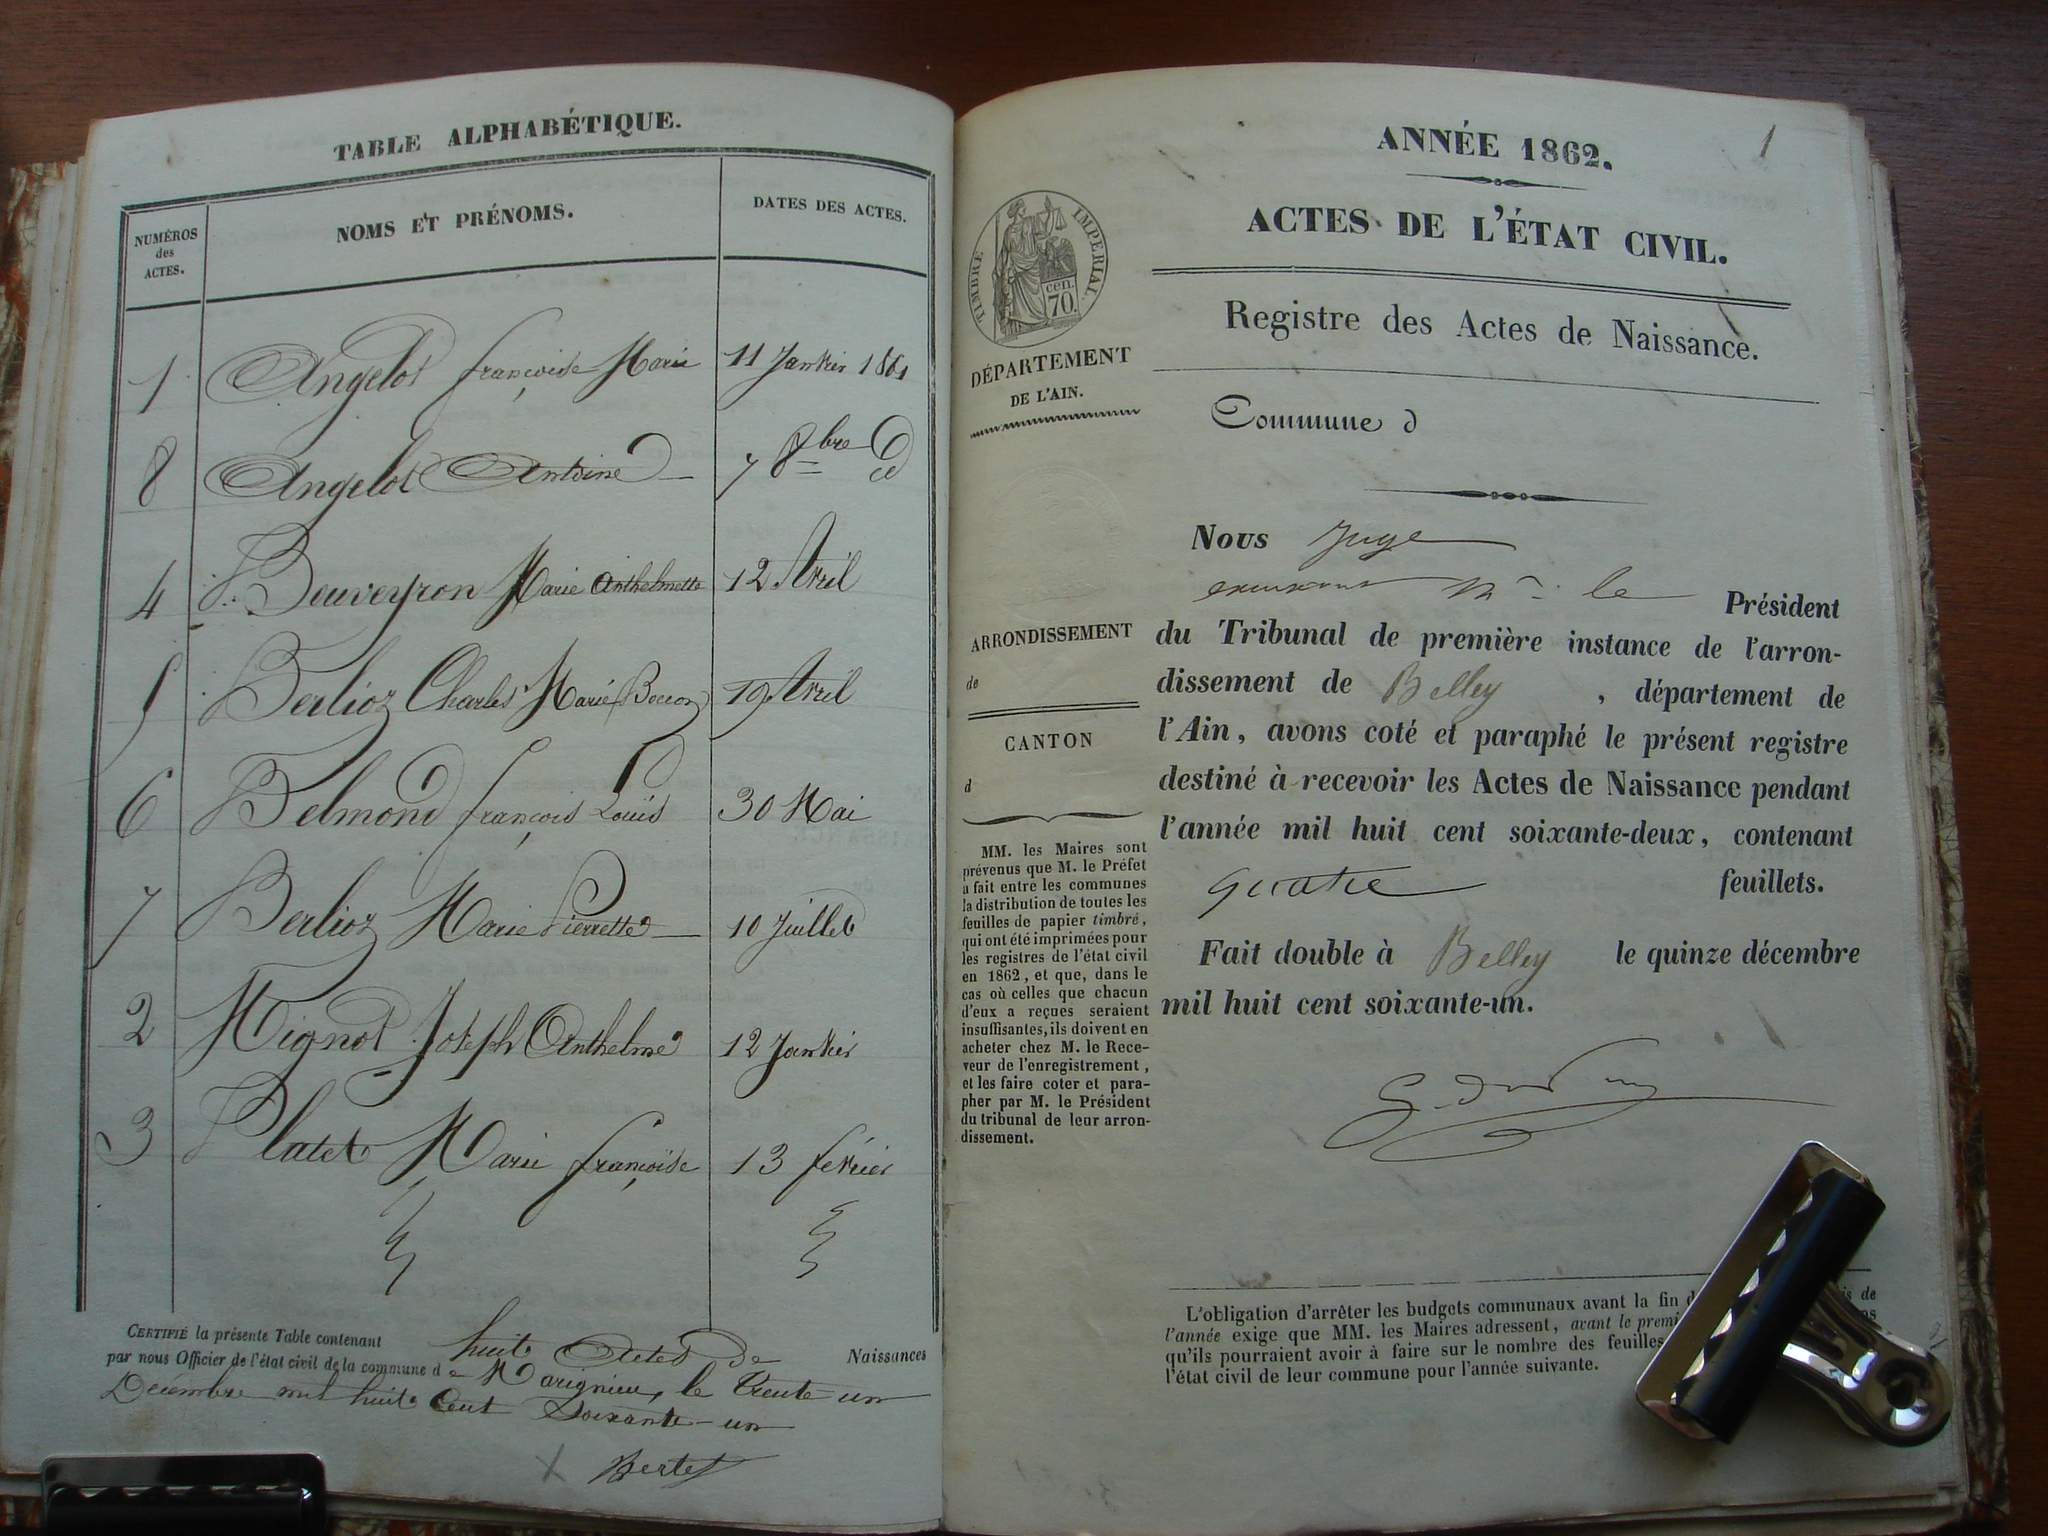 TABLE ALPHABÉTIQUE.
NUMÉROS des ACTES. NOMS ET PRÉNOMS. DATES DES ACTES.
1 Angelot françoise Marie 11 Janvier 1861
8 Angelot Antoine 7 8bre d
4 Beuveyron Marie Anthelmette 12 Avril
5 Berlioz Charles Marie Boccon 19 Avril
6 Belmond françois Louis 30 Mai
7 Berlioz Marie Pierrette 10 Juillet
2 Mignot Joseph Anthelme 12 Janvier
3 Platet Marie françoise 13 février
CERTIFIÉ la présente Table contenant huit Actes de Naissances
par nous Officier de l'état civil de la commune de Marignieu, le trente-un
Décembre mil huit Cent Soixante-un
Bertet
1
ANNÉE 1862.
ACTES DE L'ÉTAT CIVIL.
Registre des Actes de Naissance.
TIMBRE IMPÉRIAL
cen.
70.
DÉPARTEMENT
DE L'AIN.
Commune d
Nous Juge
Mr. le Président
du Tribunal de première instance de l'arron-
dissement de Belley, département de
l'Ain, avons coté et paraphé le présent registre
destiné à recevoir les Actes de Naissance pendant
l'année mil huit cent soixante-deux, contenant
quatre feuillets.
Fait double à Belley le quinze décembre
mil huit cent soixante-un.
ARRONDISSEMENT
de
CANTON
d
MM. les Maires sont
prévenus que M. le Préfet
a fait entre les communes
la distribution de toutes les
feuilles de papier timbré,
qui ont été imprimées pour
les registres de l'état civil
en 1862, et que, dans le
cas où celles que chacun
d'eux a reçues seraient
insuffisantes, ils doivent en
acheter chez M. le Rece-
veur de l'enregistrement,
et les faire coter et para-
pher par M. le Président
du tribunal de leur arron-
dissement.
L'obligation d'arrêter les budgets communaux avant la fin d is de
l'année exige que MM. les Maires adressent, avant le premi
qu'ils pourraient avoir à faire sur le nombre des feuilles
l'état civil de leur commune pour l'année suivante.